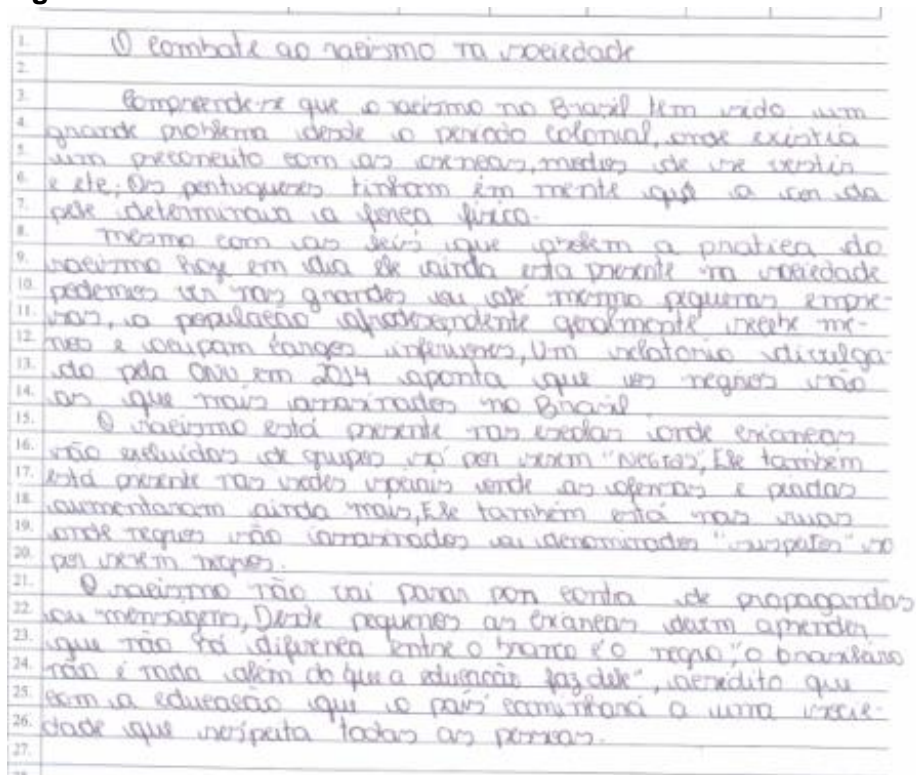 O combate ao racismo na sociedade
Compreende-se que o racismo no Brasil tem sido um
grande problema desde o período colonial, onde existia
um preconceito com as crenças, modos de se vestir
e etc; Os portugueses tinham em mente que a cor da
pele determinava a força física.
mesmo com as leis que proíbem a pratica do
racismo hoje em dia ele ainda esta presente na sociedade
podemos ver nas grandes ou até mesmo pequenas empre-
sas, a população afrodescendente geralmente recebe me-
nos e ocupam cargos inferiores, Um relatorio divulga-
do pela ONU em 2014 aponta que os negros são
os que mais assasinados no Brasil.
O racismo está presente nas escolas onde crianças
são excluídas de grupos só por serem "Negros", Ele também
está presente nas redes sociais onde as ofensas e piadas
aumentaram ainda mais, Ele também está nas ruas
onde negros são assasinados ou denominados "suspeitos" so
por serem negros.
O racismo não vai parar por conta de propagandas
ou mensagens, Desde pequenos as crianças devem aprender
que não há diferença entre o branco e o negro, "o brasileiro
não é nada além do que a educação faz dele", acredito que
com a educação que o país caminhará a uma socie-
dade que respeita todas as pessoas.
1.
2.
3.
4.
5.
6.
7.
8.
9.
10.
11.
12.
13.
14.
15.
16.
17.
18.
19.
20.
21.
22.
23.
24.
25.
26.
27.